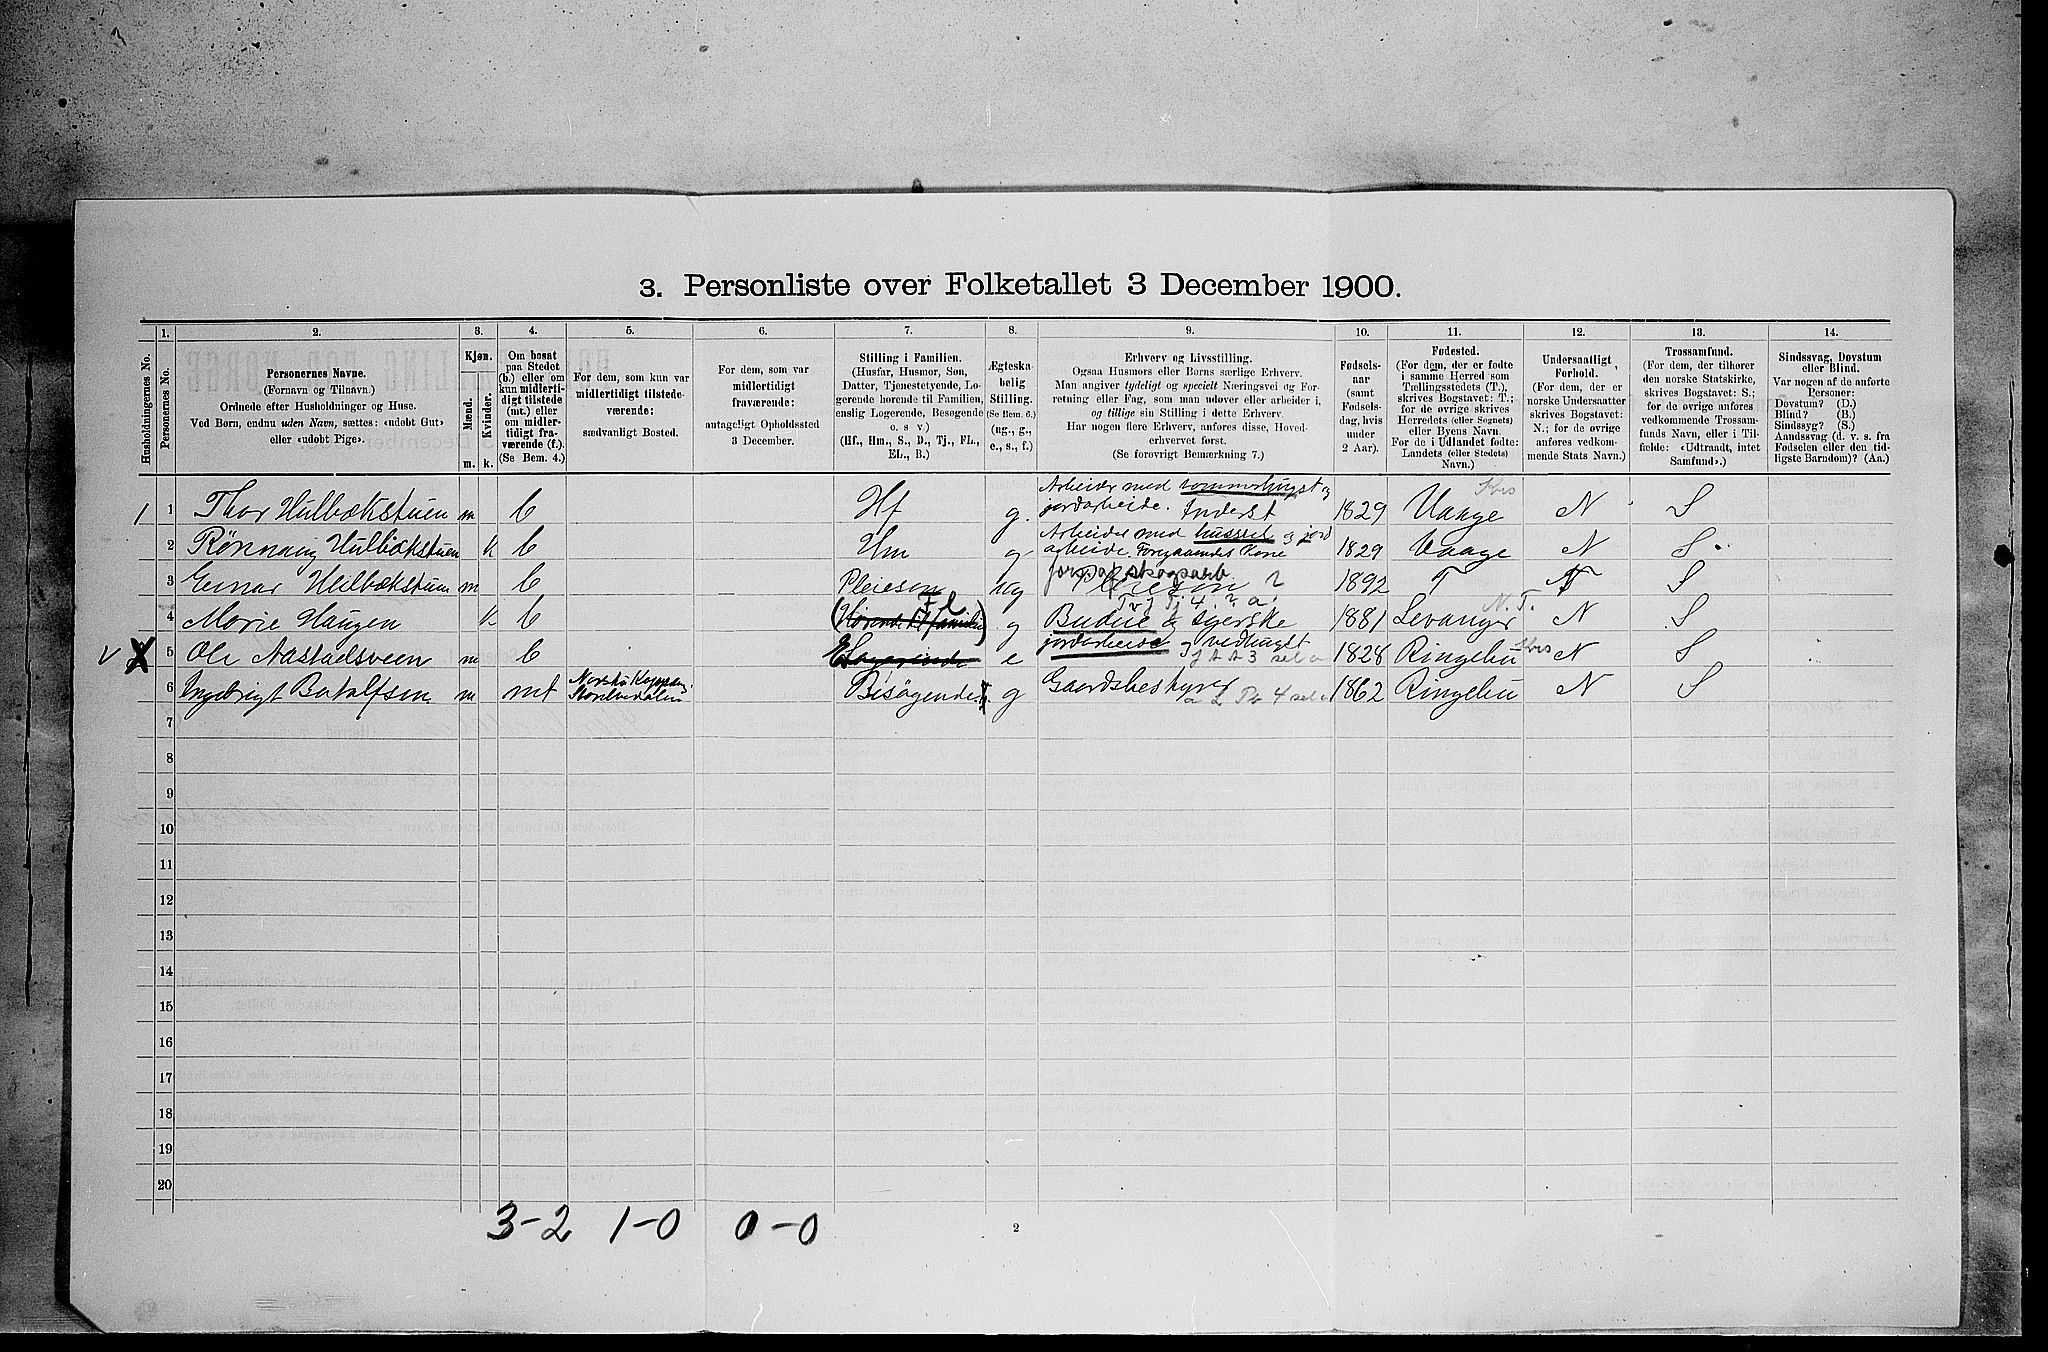 3. Personliste over Folketallet 3 December 1900.
1. 2. 3. 4. 5. 6. 7. 8. 9. 10. 11. 12. 13. 14.
Husholdningernes No.
Personernes No.
Personernes Navne.
(Fornavn og Tilnavn.)
Ordnede efter Husholdninger og Huse.
Ved Børn, endnu uden Navn, sættes: «udøbt Gut»
eller «udøbt Pige».
Kjøn.
Mænd.
Kvinder.
m. k.
Om bosat
paa Stedet
(b.) eller om
kun midlerti-
digt tilstede
(mt.) eller
om midler-
tidigt fra-
værende (f.).
(Se Bem. 4.)
For dem, som kun var
midlertidigt tilstede-
værende:
sædvanligt Bosted.
For dem, som var
midlertidigt
fraværende:
antageligt Opholdssted
3 December.
Stilling i Familien.
(Husfar, Husmor, Søn,
Datter, Tjenestetyende, Lo-
gerende hørende til Familien,
enslig Logerende, Besøgende
o. s v.)
(Hf., Hm., S., D., Tj., FL.,
EL., B.)
Ægteska-
belig
Stilling.
(Se Bem. 6.)
(ug., g.,
e., s., f.)
Erhverv og Livsstilling.
Ogsaa Husmors eller Børns særlige Erhverv.
Man angiver tydeligt og specielt Næringsvei og For-
retning eller Fag, som man udøver eller arbeider i,
og tillige sin Stilling i dette Erhverv.
Har nogen flere Erhverv, anføres disse, Hoved-
erhvervet først.
(Se forøvrigt Bemærkning 7.)
Fødsels-
aar
(samt
Fødsels-
dag, hvis
under
2 Aar).
Fødested.
(For dem, der er fødte
i samme Herred som
Tællingsstedets (T.),
skrives Bogstavet: T.;
for de øvrige skrives
Herredets (eller Sognets)
eller Byens Navn.
For de i Udlandet fødte:
Landets (eller Stedets)
Navn.)
Undersaatligt
Forhold.
(For dem, der er
norske Undersaatter
skrives Bogstavet:
N.; for de øvrige
anføres vedkom-
mende Stats Navn.)
Trossamfund.
(For dem, der tilhører
den norske Statskirke,
skrives Bogstavet: S.;
for de øvrige anføres
vedkommende Trossam-
funds Navn, eller i Til-
fælde: «Udtraadt, intet
Samfund».)
Sindssvag, Døvstum
eller Blind.
Var nogen af de anførte
Personer:
Døvstum? (D.)
Blind? (B.)
Sindssyg? (S.)
Aandssvag (d. v. s. fra
Fødselen eller den tid-
ligste Barndom)? (Aa.)
1 1 Thor Hulbækstuen m b Hf g. Arbeider med tømmerhugst og jordarbeide. Inderst 1829 Vaage Kris N S
2 Rönnaug Hulbækstuen k b Hm g Arbeider med hussel og jord arbeide. Foregaaendes Kone 1829 Vaage N S
3 Einar Hulbækstuen m b Pleiesøn ug Pleiesøn 1892 T S
4 Marie Haugen k b FL g Budeie og 1881 Levanger N. T. N S
5 Ole Nastadsveen m b EL e jordarbeide og vedhugst 1828 Ringebu Kris N S
6 Ingebrigt Botolfsen m mt Besøgende g Gaardsbestyrer 1862 Ringebu N S
7
8
9
10
11
12
13
14
15
16
17
18
19
20
3-2 1-0 0-0
2